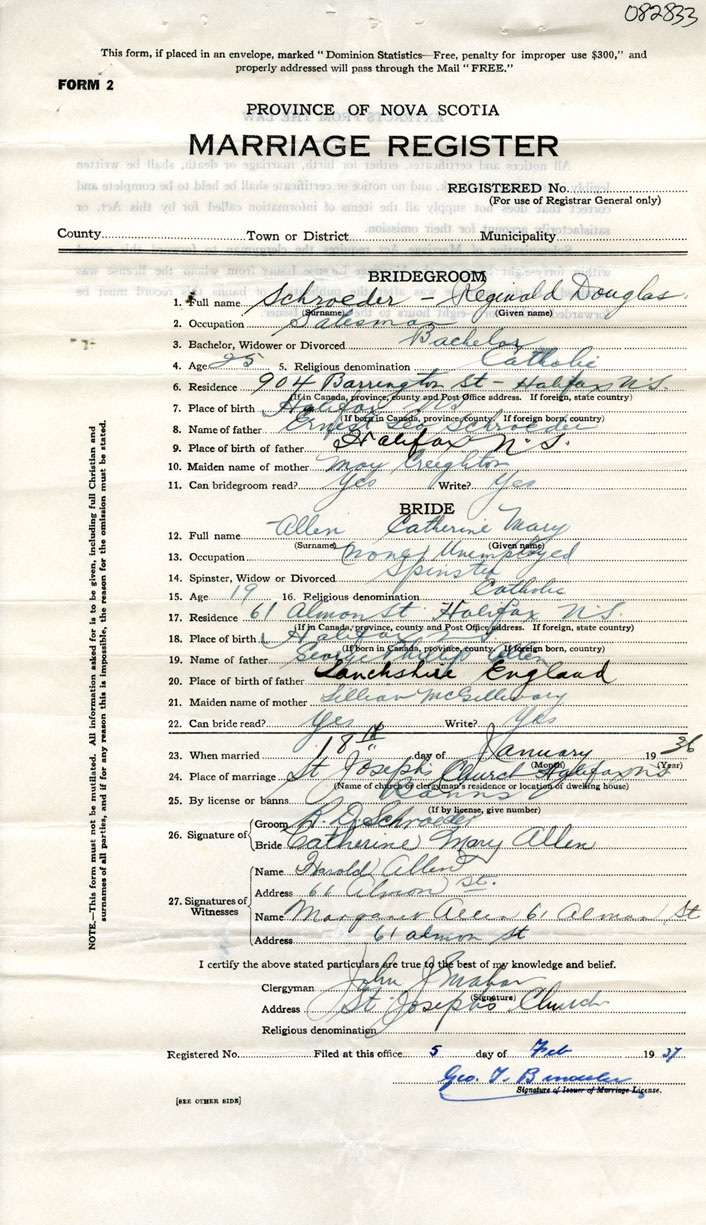 082833
This form, if placed in an envelope, marked "Dominion Statistics—Free, penalty for improper use $300," and
properly addressed will pass through the Mail "FREE."
FORM 2
PROVINCE OF NOVA SCOTIA
MARRIAGE REGISTER
REGISTERED No.
(For use of Registrar General only)
County Town or District Municipality
BRIDEGROOM
1. Full name Schroeder - Reginald Douglas
(Surname) (Given name)
2. Occupation Salesman
3. Bachelor, Widower or Divorced Bachelor
4. Age 25 5. Religious denomination Catholic
6. Residence 904 Barrington St - Halifax N.S.
(If in Canada, province, county and Post Office address. If foreign, state country)
7. Place of birth Halifax NS
(If born in Canada, province, county. If foreign born, country)
8. Name of father Ernest Leo Schroeder
9. Place of birth of father Halifax N.S.
10. Maiden name of mother May Creighton
11. Can bridegroom read? Yes Write? Yes
BRIDE
12. Full name Allen Catherine Mary
(Surname) (Given name)
13. Occupation (none) Unemployed
14. Spinster, Widow or Divorced Spinster
15. Age 19 16. Religious denomination Catholic
17. Residence 61 Almon St. Halifax N.S.
(If in Canada, province, county and Post Office address. If foreign, state country)
18. Place of birth Halifax N.S.
(If born in Canada, province, county. If foreign born, country)
19. Name of father George Phillip Allen
20. Place of birth of father Lanchshire England
21. Maiden name of mother Lillian McGillivary
22. Can bride read? Yes Write? Yes
23. When married 18th day of January 1936
(Month) (Year)
24. Place of marriage St Josephs Church Halifax NS
(Name of church or clergyman's residence or location of dwelling house)
25. By license or banns Banns
(If by license, give number)
26. Signature of Groom R. D. Schroeder
Bride Catherine Mary Allen
27. Signatures of Witnesses
Name Harold Allen
Address 61 Almon St.
Name Margaret Allen 61 Almon St
Address 61 almon st
I certify the above stated particulars are true to the best of my knowledge and belief.
Clergyman John J
(Signature)
Address St Josephs Church
Religious denomination
Registered No. Filed at this office 5 day of Feb 1937
Geo. T.
Signature of Issuer of Marriage License.
[SEE OTHER SIDE]
NOTE.—This form must not be mutilated. All information asked for is to be given, including full Christian and
surnames of all parties, and if for any reason this is impossible, the reason for the omission must be stated.